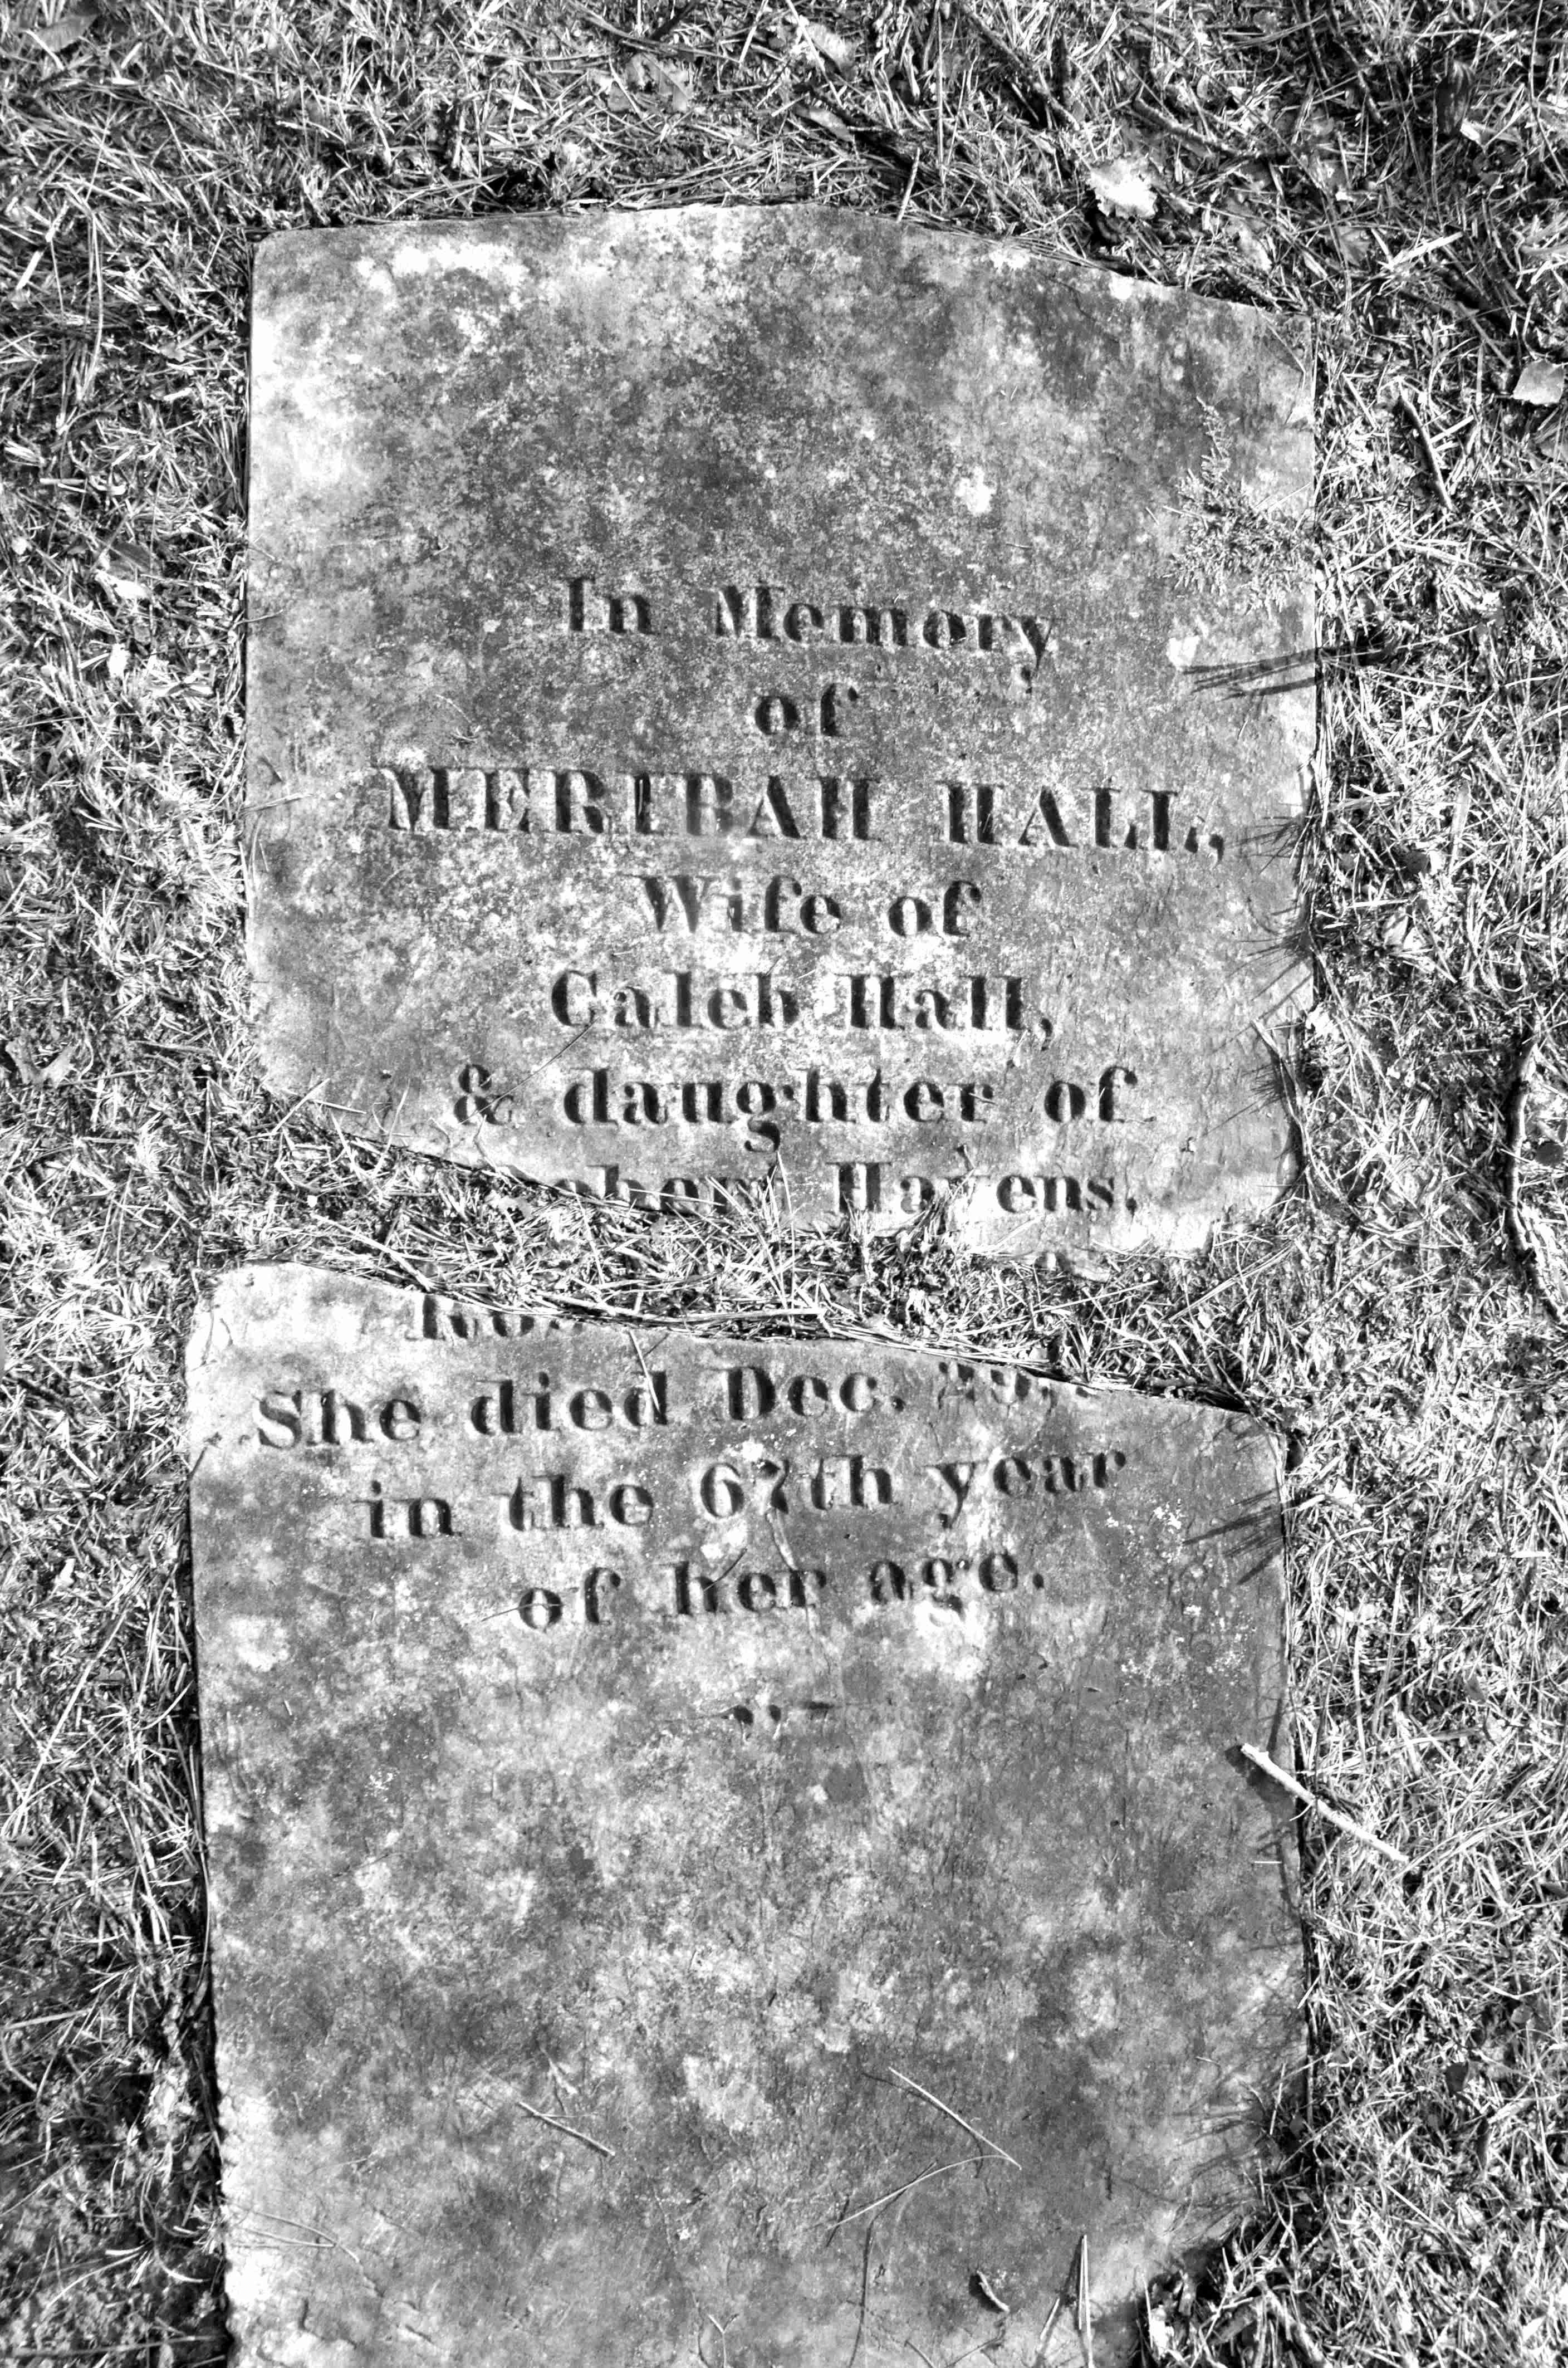 In Memory
of
MERIBAH HALL,
Wife of
Caleb Hall,
& daughter of
Havens.
She died Dec. 29,
in the 67th year
of her age.